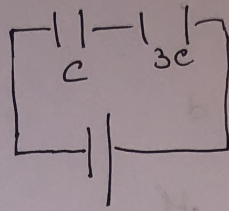 C 3C